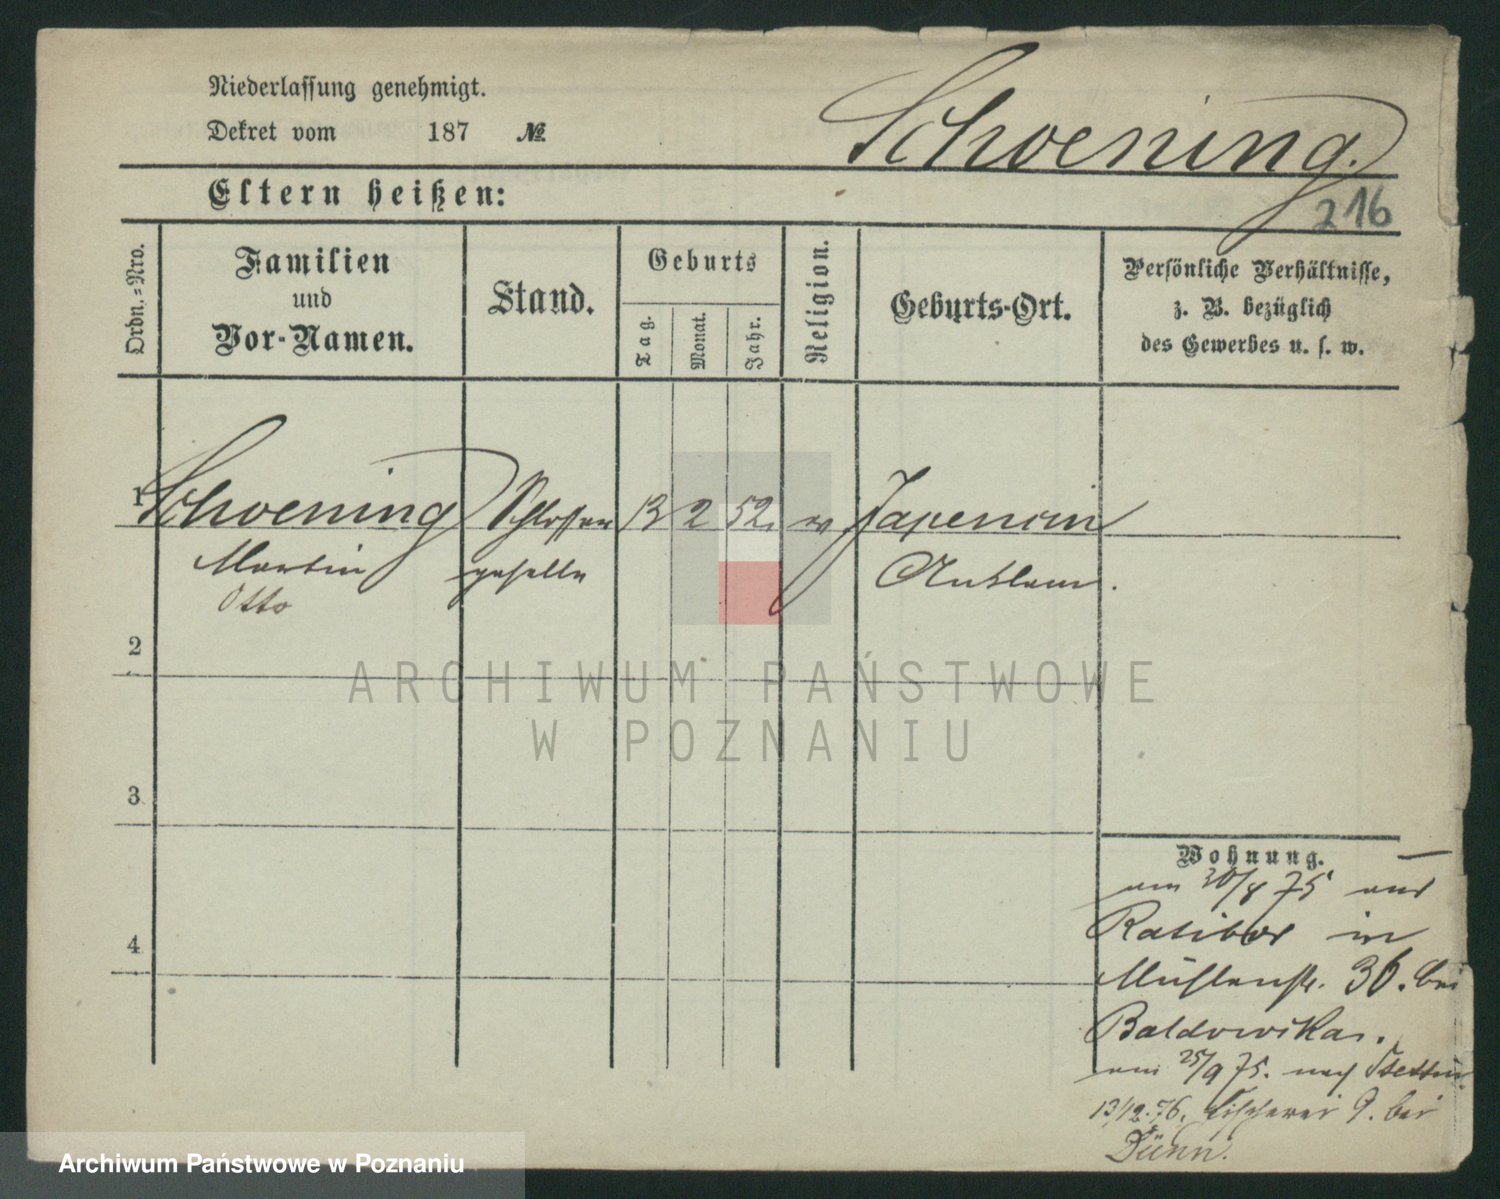 Niederlassung genehmigt.
Dekret vom 187 №
Schoening.
Eltern heißen:
216
Ordn.-Nro.
Familien
und
Vor-Namen.
Stand.
Geburts
Tag.
Monat.
Jahr.
Religion.
Geburts-Ort.
Persönliche Verhältnisse,
z. B. bezüglich
des Gewerbes u. s. w.
1 Schoening Schlosser 13 2 52. ev Japenzin
Martin geselle Anklam.
Otto
2
3
4
Wohnung.
am 30/8 75 aus
Ratibor in
Mühlenstr. 36. bei
Baldowska.
am 25/9 75. nach Stettin
13/12.76. Fischerei 9. bei
Dünn.
ARCHIWUM PAŃSTWOWE
W POZNANIU
Archiwum Państwowe w Poznaniu